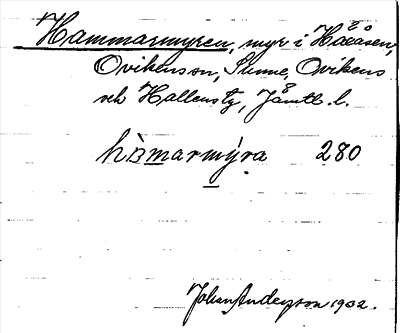 Hammarmyren, myr i Hååsen,
Ovikenson, Sunne, Ovikens
och Hallens tg, Jämtl. l.
hìmarmýra 280
Johan Anderzson 1902.